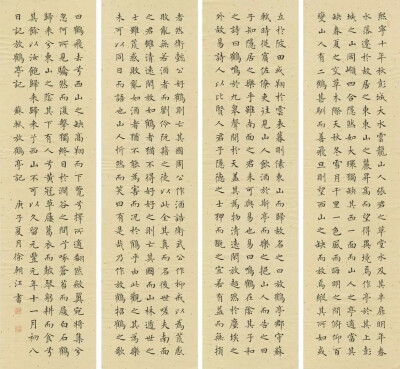 熙寧十年秋彭城大水雲龍山人張君之草堂水及其半扉明年春
水落遷於故居之東東山之麓昇高而望得異境焉作亭於其上彭
城之山岡嶺四合隱然如大環獨缺其一面而山人之亭適當其
缺春夏之交草木際天秋冬雪月千里一色風雨晦明之間俯仰百
變山人有二鶴甚馴而善飛旦則望西山之缺而放焉縱其所如或
立於陂田或翔於雲表暮則傃東山而歸故名之曰放鶴亭郡守蘇
軾時從賓佐僚吏往見山人飲酒於斯亭而樂之挹山人而告之曰
子知隱居之樂乎雖南面之君未可與易也易曰鳴鶴在陰其子和
之詩曰鶴鳴於九皋聲聞於天蓋其為物清遠閑放超然於塵埃之
外故易詩人以比賢人君子隱德之士狎而玩之宜若有益而無損
者然衛懿公好鶴則亡其國周公作酒誥衛武公作抑戒以為荒惑
敗亂無若酒者而劉伶阮籍之徒以此全其真而名後世嗟夫南面
之君雖清遠閑放如鶴者猶不得好好之則亡其國而山林遯世之
士雖荒惑敗亂如酒者猶不能為害而況於鶴乎由此觀之其為樂
未可以同日而語也山人忻然而笑曰有是哉乃作放鶴招鶴之歌
曰鶴飛去兮西山之缺高翔而下覽兮擇所適翻然斂翼宛將集兮
忽何所見矯然而復擊獨終日於澗谷之間兮啄蒼苔而履白石鶴
歸來兮東山之陰其下有人兮黃冠草屨葛衣而鼓琴躬耕而食兮
其餘以汝飽歸來歸來兮西山不可以久留元豐元年十一月初八
日記放鶴亭記 蘇軾放鶴亭記 庚子夏月徐朝江書